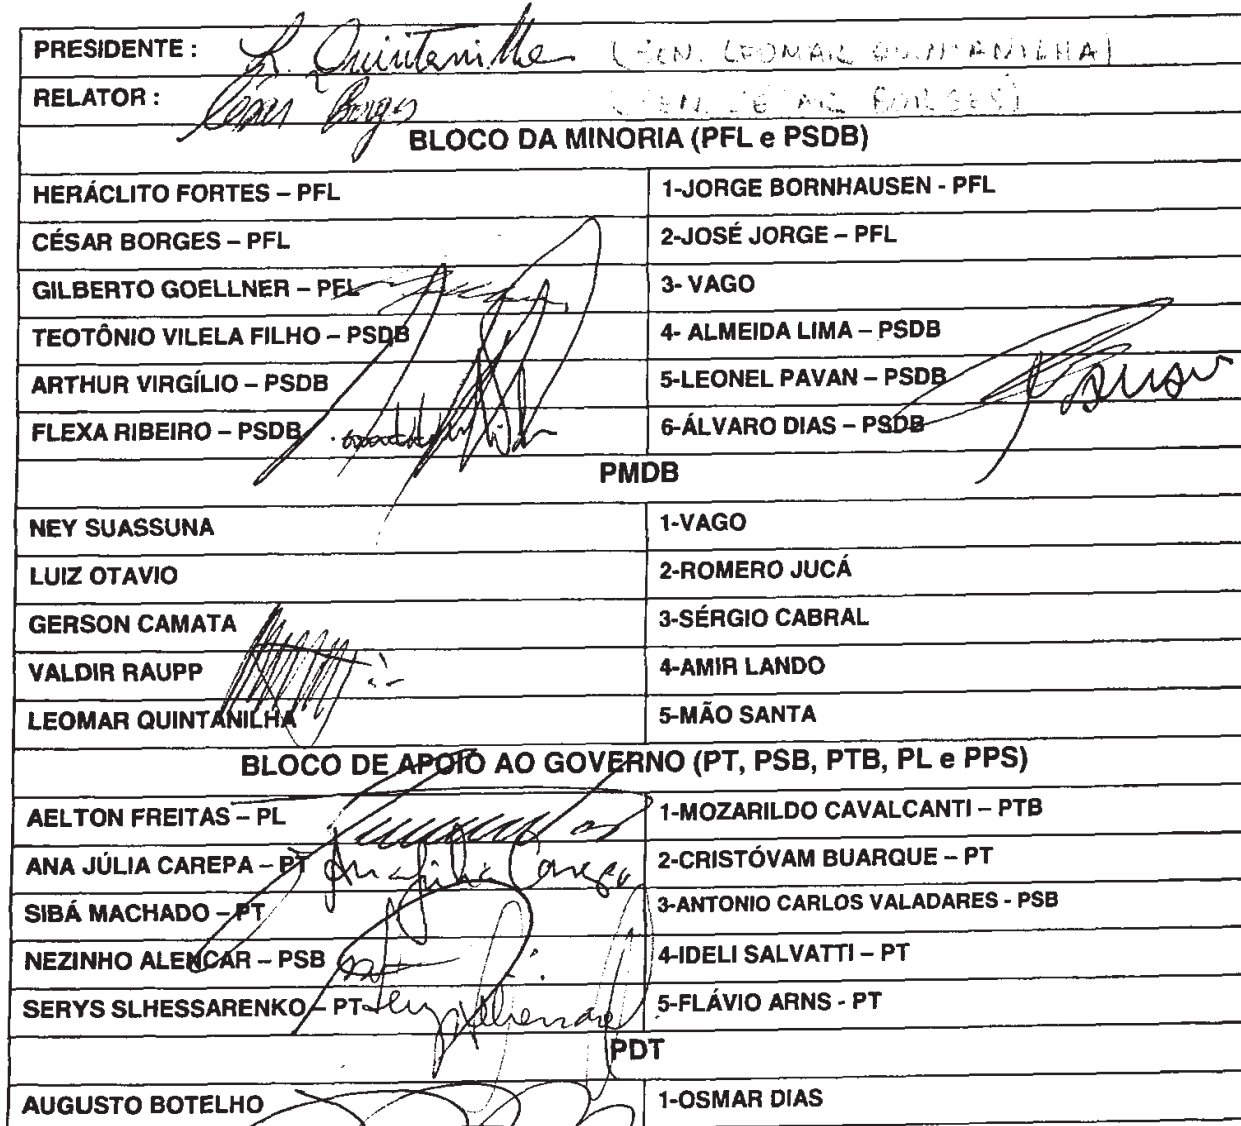 PRESIDENTE : L. Quintanilha (SEN. LEOMAR QUINTANILHA)
RELATOR : César Borges (SEN. CÉSAR BORGES)
BLOCO DA MINORIA (PFL e PSDB)
HERÁCLITO FORTES – PFL 1-JORGE BORNHAUSEN - PFL
CÉSAR BORGES – PFL 2-JOSÉ JORGE – PFL
GILBERTO GOELLNER – PFL 3- VAGO
TEOTÔNIO VILELA FILHO – PSDB 4- ALMEIDA LIMA – PSDB
ARTHUR VIRGÍLIO – PSDB 5-LEONEL PAVAN – PSDB
FLEXA RIBEIRO – PSDB 6-ÁLVARO DIAS – PSDB
PMDB
NEY SUASSUNA 1-VAGO
LUIZ OTAVIO 2-ROMERO JUCÁ
GERSON CAMATA 3-SÉRGIO CABRAL
VALDIR RAUPP 4-AMIR LANDO
LEOMAR QUINTANILHA 5-MÃO SANTA
BLOCO DE APOIO AO GOVERNO (PT, PSB, PTB, PL e PPS)
AELTON FREITAS – PL 1-MOZARILDO CAVALCANTI – PTB
ANA JÚLIA CAREPA – PT Ana Júlia Carepa 2-CRISTÓVAM BUARQUE – PT
SIBÁ MACHADO – PT 3-ANTONIO CARLOS VALADARES - PSB
NEZINHO ALENCAR – PSB 4-IDELI SALVATTI – PT
SERYS SLHESSARENKO – PT 5-FLÁVIO ARNS - PT
PDT
AUGUSTO BOTELHO 1-OSMAR DIAS